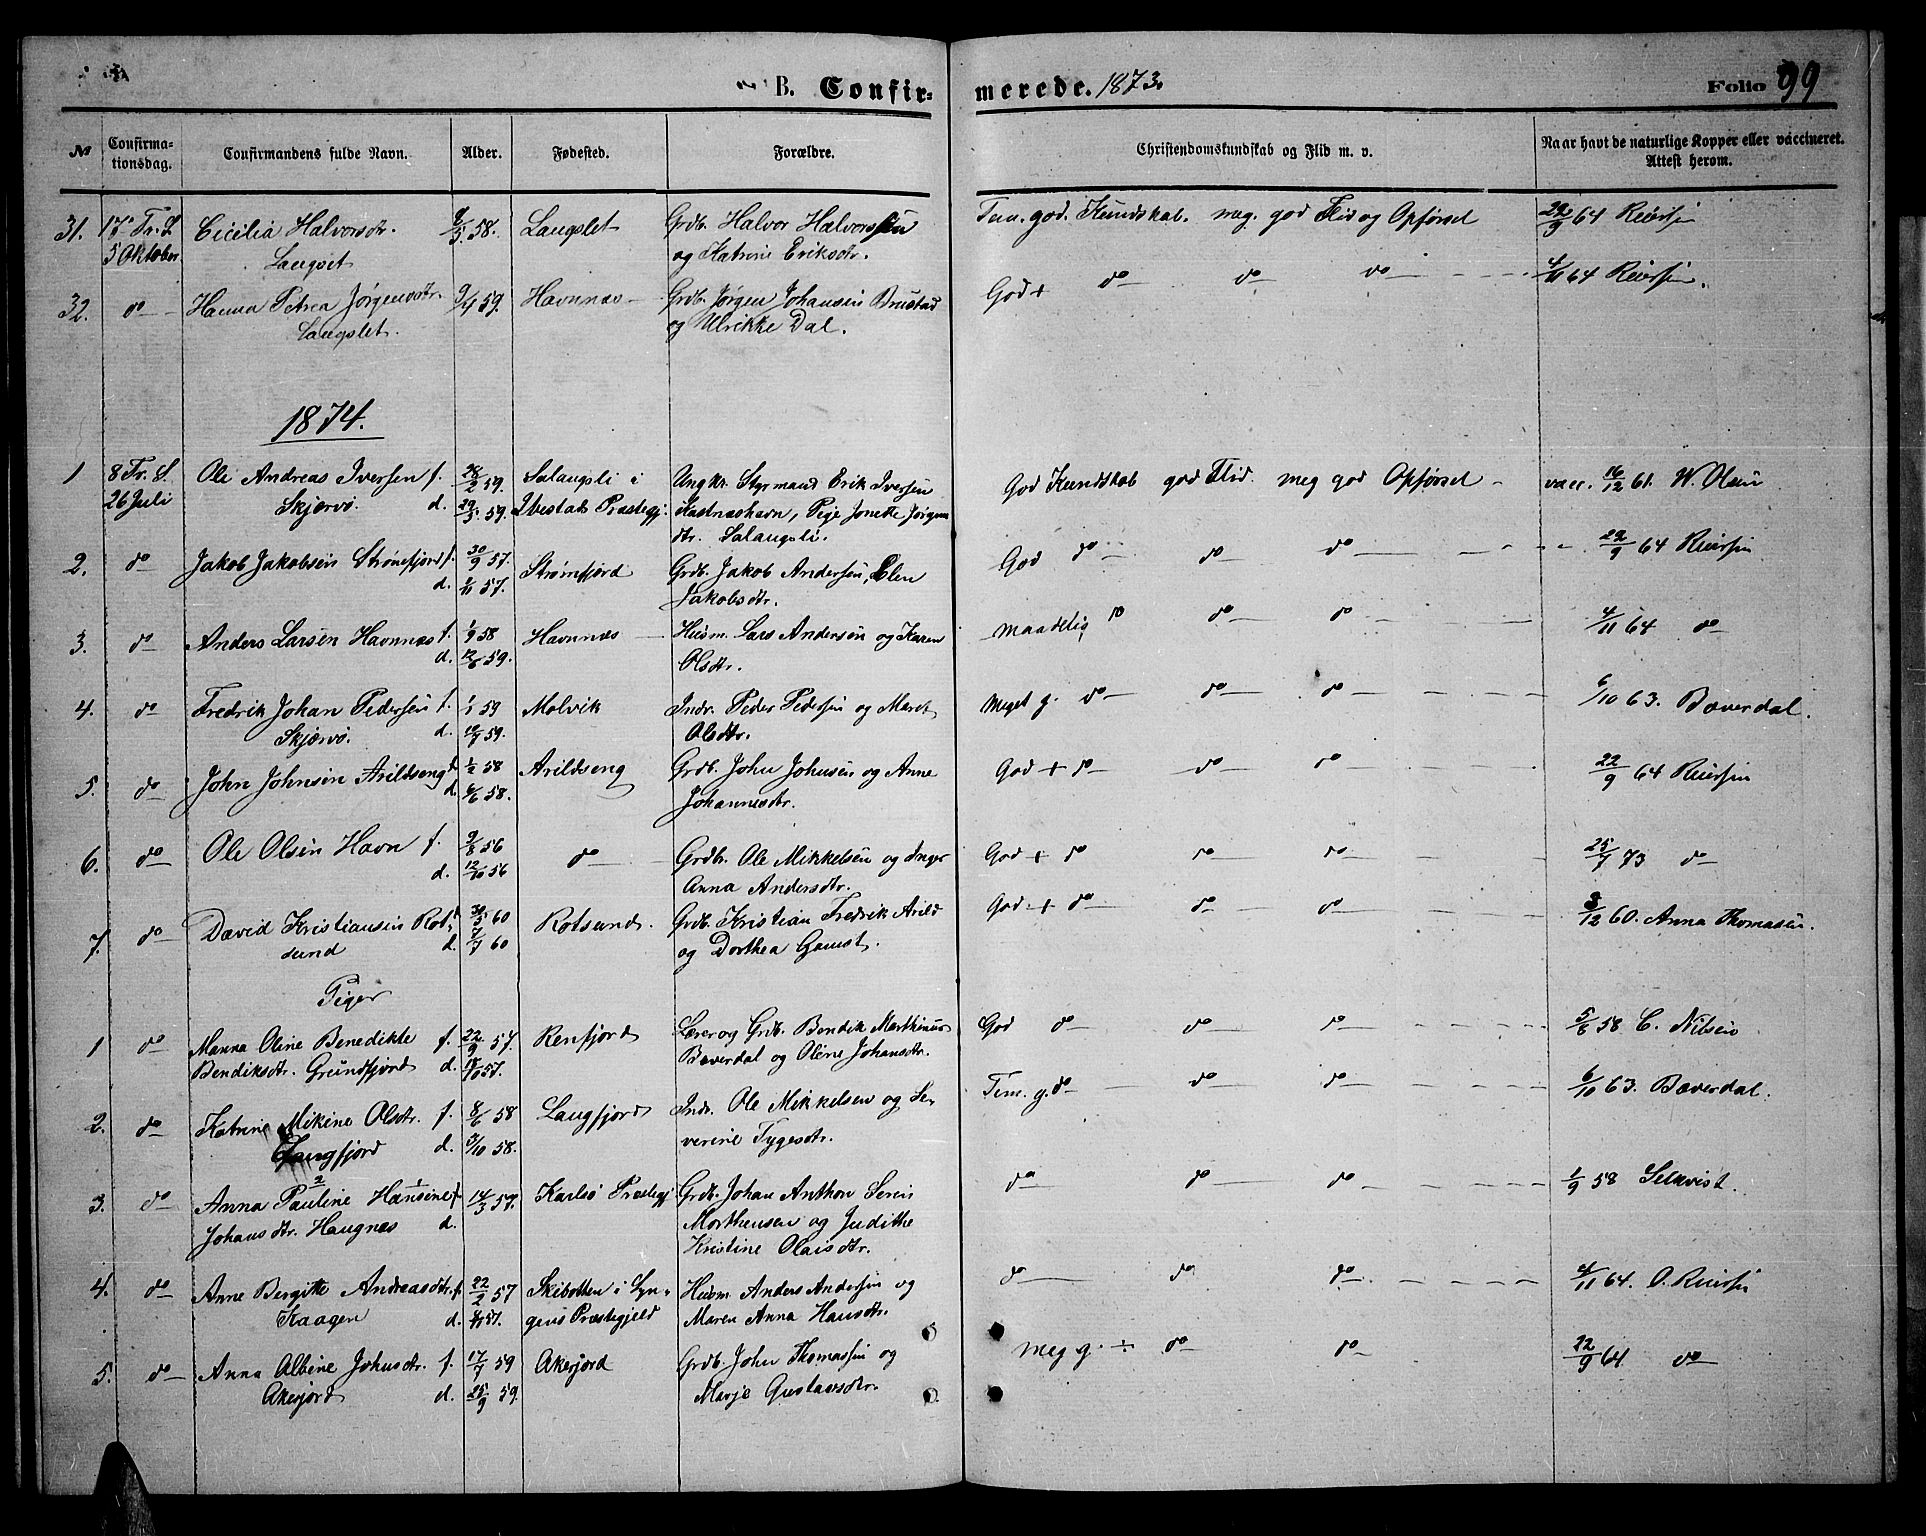 B. Confir-
merede. 1873.
Folio 99
№
Confirma-
tionsdag.
Confirmandens fulde Navn.
Alder.
Fødested.
Forældre.
Christendomskundskab og Flid m. v.
Naar havt de naturlige Kopper eller vaccineret.
Attest herom.
31. 17 Tr. S. Cicilia Halvorsdtr. 58. Langslet Grdb. Halvor Halvorsen god. Kundskab. meg. god Flid og Opførsel 22/9 64 Reiersen
5 Oktober Langset og Katrine Eriksdtr.
32. do Hanna Petrea Jørgensdtr. 9/4 59. Havnnæs Grdb. Jørgen Johansen Brustad God + do do do 4/11 64 Reiersen.
Langslet. og Ulrikke Dal.
1874.
1 8 Tr. S. Ole Andreas Iversen f. 28/2 59. Salangsli i Ungkr. Styrmand Erik Iversen God Kundskab god Flid. meg god Opførsel vacc. 16/12 61. W. Olsen
26 Juli Skjærvø. d. 29/5 59. Ibestads Præstegj. Kastnæshavn, Pige Jonette Jørgens
dtr. Salangsli.
2. do Jakob Jakobsen Strømfjord f. 30/9 57. Strømfjord Grdb. Jakob Andersen, Elen God do do do 22/9 64 Reiersen
d. 57. Jakobsdtr.
3. do Anders Larsen Havnnæs f. 1/9 58 Havnnæs Husm. Lars Andersen og Karen maadelig do do do 4/11 64 do
d. 12/6 59. Olsdtr.
4. do Fredrik Johan Pedersen f. 1/1 59 Molvik Indr. Peder Pedersen og Maret Meget g. do do do 6/10 63. Bæverdal.
Skjærvø. d. 12/7 59. Olsdtr.
5. do John Johnsen Arildseng f. 1/2 58 Arildseng Grdb. John Johnsen og Anne God + do do do 22/9 64 Reiersen
d. 6/6 58. Johannesdtr.
6. do Ole Olsen Havn f. 9/8 56 do Grdb. Ole Mikkelsen og Inger God + do do do 25/7 73 do
d. 12/10 56 Anna Andersdtr.
7. do David Kristiansen Rot- 30/5 60 Rotsund. Grdb. Kristian Fredrik Arild God + do do do 8/12 60. Anna Thomasen.
sund d. 7/7 60 og Dorthea Gamst.
Piger
1 do Manna Oline Benedikte f. 22/9 57. Renfjord Lærer og Grdb. Bendik Marthinus God do do do 5/8 58 C. Nilsen
Bendiksdtr. Grundfjord d. 18/10 57. Bæverdal og Oline Johansdtr.
2. do Katrine Mikine Olsdtr. f. 8/6 58 Langfjord Indr. Ole Mikkelsen og Se- Tem. g. do do do 6/10 63. Bæverdal.
Langfjord d. 3/10 58. verine Tygesdtr.
3. do Anna Pauline Hansine f. 14/3 57. Karlsø Præstegj Grdb. Johan Anthon Serin do do do 1/9 58 Selqvist.
Johansdtr. Haugnæs d. Morthensen og Judithe
Kristine Olaisdtr.
4. do Anne Bergitte Andreasdtr. f. 22/2 57 Skibotten i Lyn- Husm. Anders Andersen og do do do 4/11 64. O. Reiersen
Kaagen d. 57. gens Præstegjeld Maren Anna Hansdtr.
5. do Anna Albine Johnsdtr. f. 17/7 59 Akerjord Grdb. John Thomassen og meg g. ÷ do do 22/9 64. do
Akerjord d. 25/9 59. Marje Gustavsdtr.